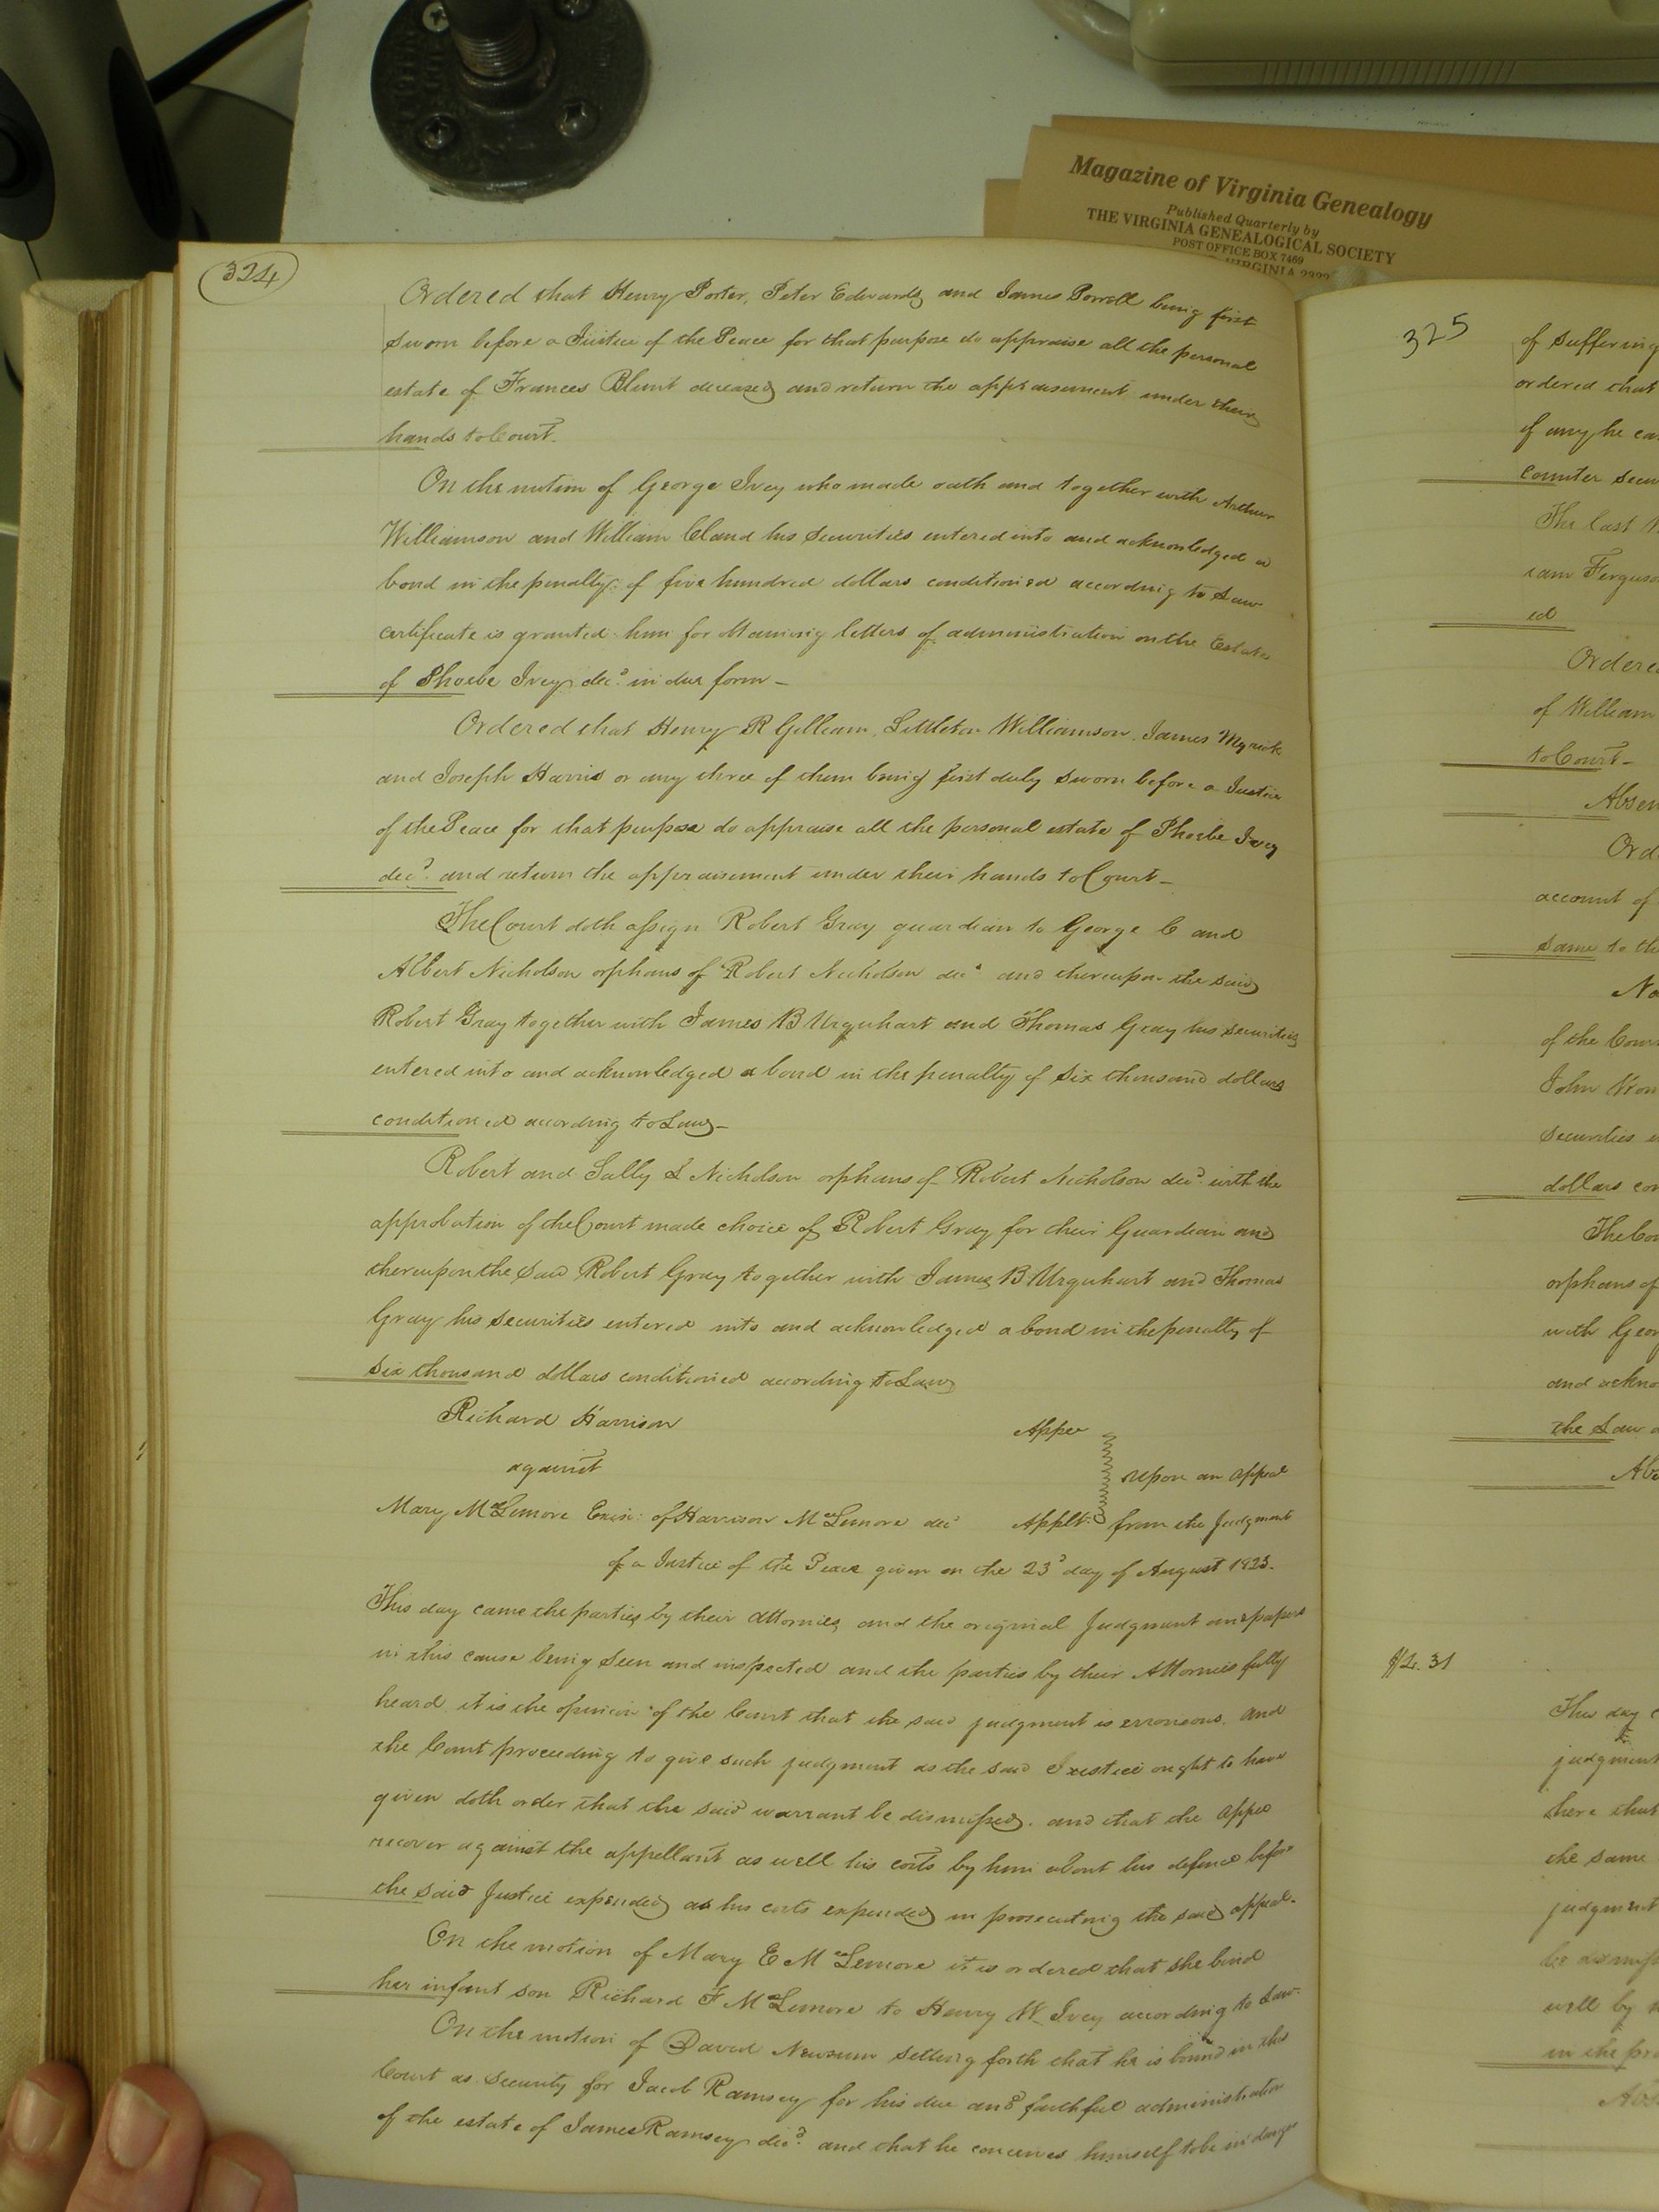 Magazine of Virginia Genealogy
Published Quarterly by
THE VIRGINIA GENEALOGICAL SOCIETY
POST OFFICE BOX 7469
VIRGINIA
324
Ordered that Henry Porter, Peter Edwards and James Porrell being first
sworn before a Justice of the Peace for that purpose do appraise all the personal
estate of Frances Blunt deceased and return the appraisement under their
hands to Court.
On the motion of George Ivey who made oath and together with Arthur
Williamson and William Bland his securities entered into and acknowledged a
bond in the penalty of five hundred dollars conditioned according to Law
certificate is granted him for obtaining letters of administration on the Estate
of Phoebe Ivey decd. in due form -
Ordered that Henry R Gilliam, Littleton Williamson, James Myrick
and Joseph Harris or any three of them being first duly sworn before a Justice
of the Peace for that purpose do appraise all the personal estate of Phoebe Ivey
decd. and return the appraisement under their hands to Court -
The Court doth assign Robert Gray guardian to George C and
Albert Nicholson orphans of Robert Nicholson decd and thereupon the said
Robert Gray together with James B Urquhart and Thomas Gray his securities
entered into and acknowledged a bond in the penalty of Six thousand dollars
conditioned according to Law -
Robert and Sally S Nicholson orphans of Robert Nicholson decd. with the
approbation of the Court made choice of Robert Gray for their Guardian and
thereupon the said Robert Gray together with James B Urquhart and Thomas
Gray his securities entered into and acknowledged a bond in the penalty of
Six thousand dollars conditioned according to Law
Richard Harrison Appee
against Upon an Appeal
Mary McLemore Exix: of Harrison McLemore decd Applt: from the Judgment
of a Justice of the Peace given on the 23d day of August 1823.
This day came the parties by their Attornies and the original Judgment and papers
in this cause being seen and inspected and the parties by their Attornies fully
heard it is the opinion of the Court that the said judgment is erroneous. And
the Court proceeding to give such judgment as the said Justice ought to have
given doth order that the said warrant be dismissed. and that the Appee
recover against the appellant as well his costs by him about his defence before
the said Justice expended as his costs expended in prosecuting the said appeal.
On the motion of Mary E McLemore it is ordered that she bind
her infant son Richard F McLemore to Henry W Ivey according to Law.
On the motion of David Newsum setting forth that he is bound in this
Court as security for Jacob Ramsey for his due and faithful administration
of the estate of James Ramsey decd. and that he conceives himself to be in danger
325
of suffering
ordered that
if any he
counter
The last

ed
Ordered
of William
to Court -
account of
same to the
of the
John
securities
dollars
orphans of
with
and
the Law
$2.31
This day
judgment
here that
the same
judgment
well by
in the